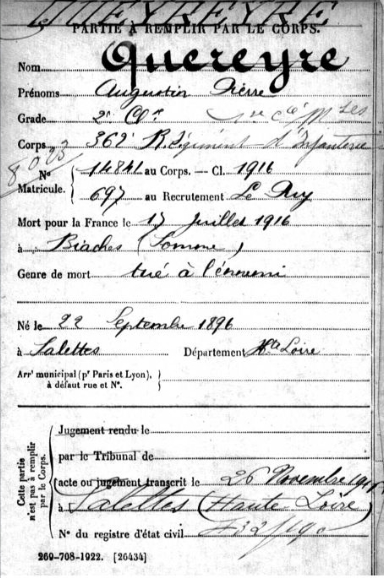 QUEYREYRE
PARTIE À REMPLIR PAR LE CORPS.
Nom Quereyre
Prénoms Augustin Pierre
Grade 2e Cl.
Corps 362e Régiment d'Infanterie
N° Matricule. 14841 au Corps. — Cl. 1916
697 au Recrutement Le Puy
Mort pour la France le 17 juillet 1916
à Biaches (Somme)
Genre de mort tué à l'ennemi
Né le 22 Septembre 1896
à Salettes Département Hte Loire
Arrt municipal (pr Paris et Lyon), à défaut rue et N°.
Cette partie n'est pas à remplir par le Corps.
Jugement rendu le
par le Tribunal de
acte ou jugement transcrit le 26 Novembre
à Salettes (Haute Loire)
N° du registre d'état civil
269-708-1922. [26434]